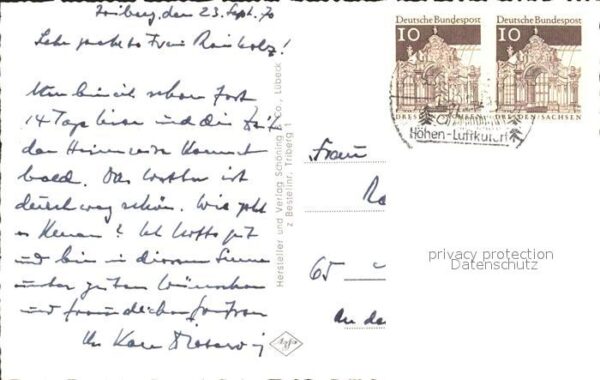 Triberg, den 23. Sept. 70
Sehr geehrte Frau Reinholz!
Nun bin ich schon fast
14 Tage hier und die Zeit
der Heimreise kommt
bald. Das Wetter ist
durchweg schön. Wie geht
es Ihnen? Ich hoffe gut
und bin in diesem Sinne
unter guten Wünschen
und freundlichen
Ihr Karl
Hersteller und Verlag Schöning & Co., Lübeck
z Bestellnr. Triberg 1
Agfa
Deutsche Bundespost
10
DRESDEN-SACHSEN
Deutsche Bundespost
10
DRESDEN-SACHSEN
Höhen-Luftkurort
Frau
65
An de
privacy protection
Datenschutz